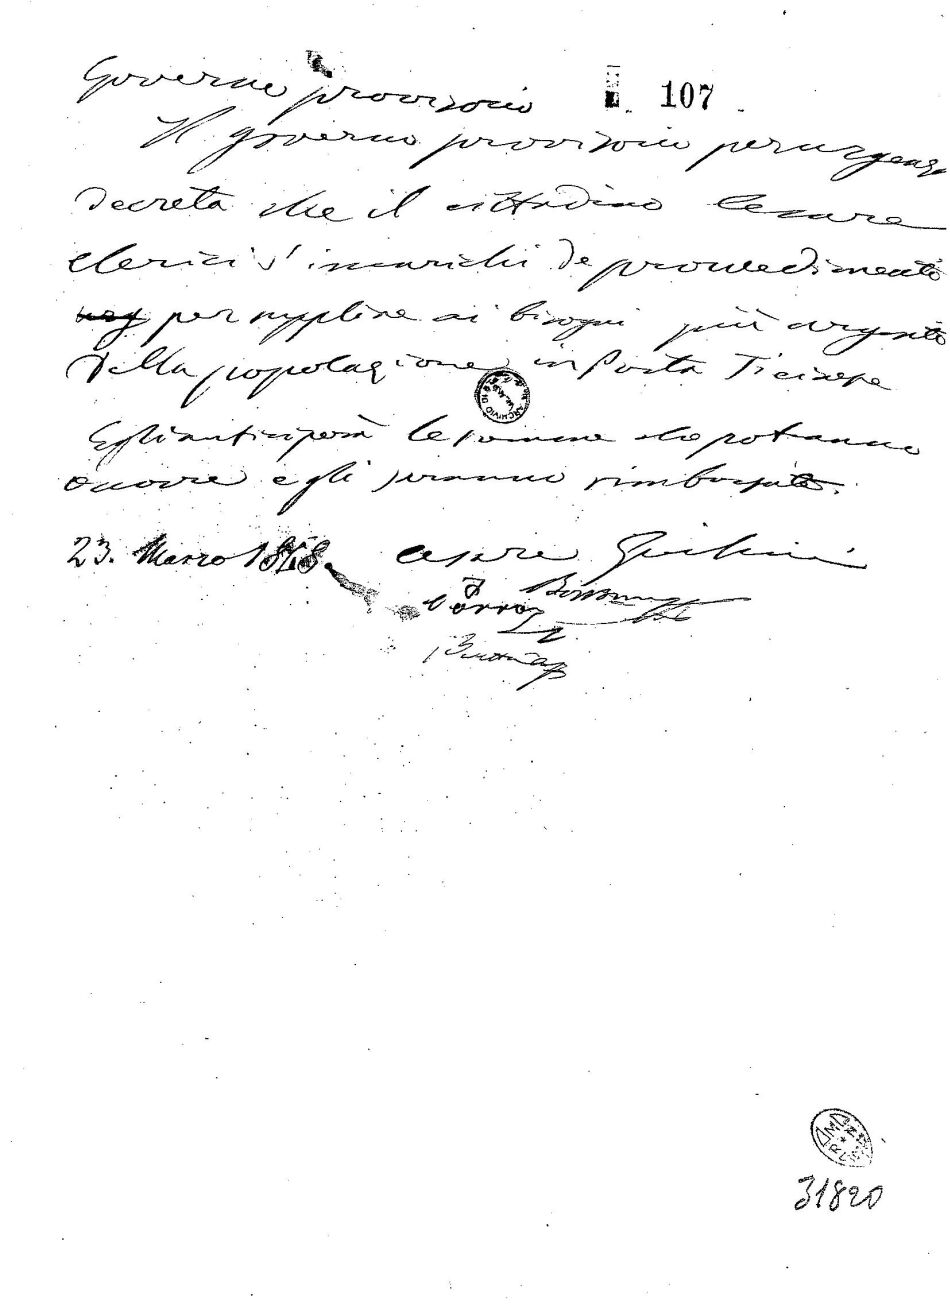 Governo provvisorio
107
Il governo provvisorio per urgenza
decreta che il cittadino Cesare
Clerici s'incarichi de provvedimenti
per supplire ai bisogni più urgenti
della popolazione in Porta Ticinese
Egli anticiperà le somme che potranno
occorre e gli saranno rimborsate.
23. Marzo 1848. Cesare Giulini
Borromeo
31820